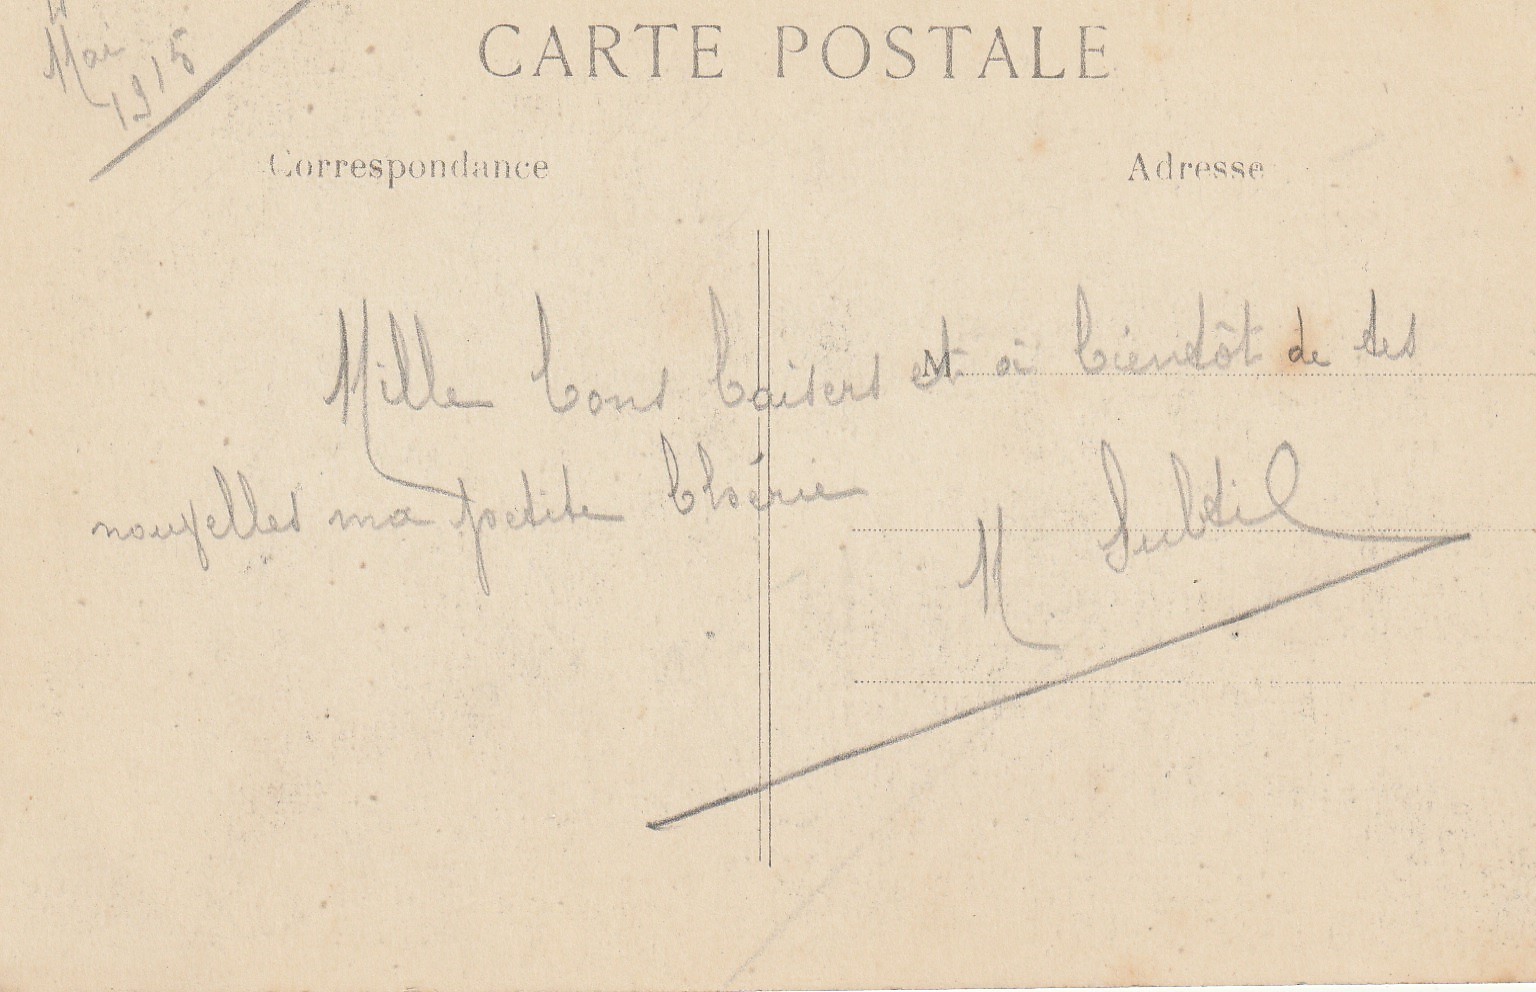 Mai
1915
CARTE POSTALE
Correspondance
Adresse
Mille bons baisers et à bientôt de tes
nouvelles ma petite
M Subtil